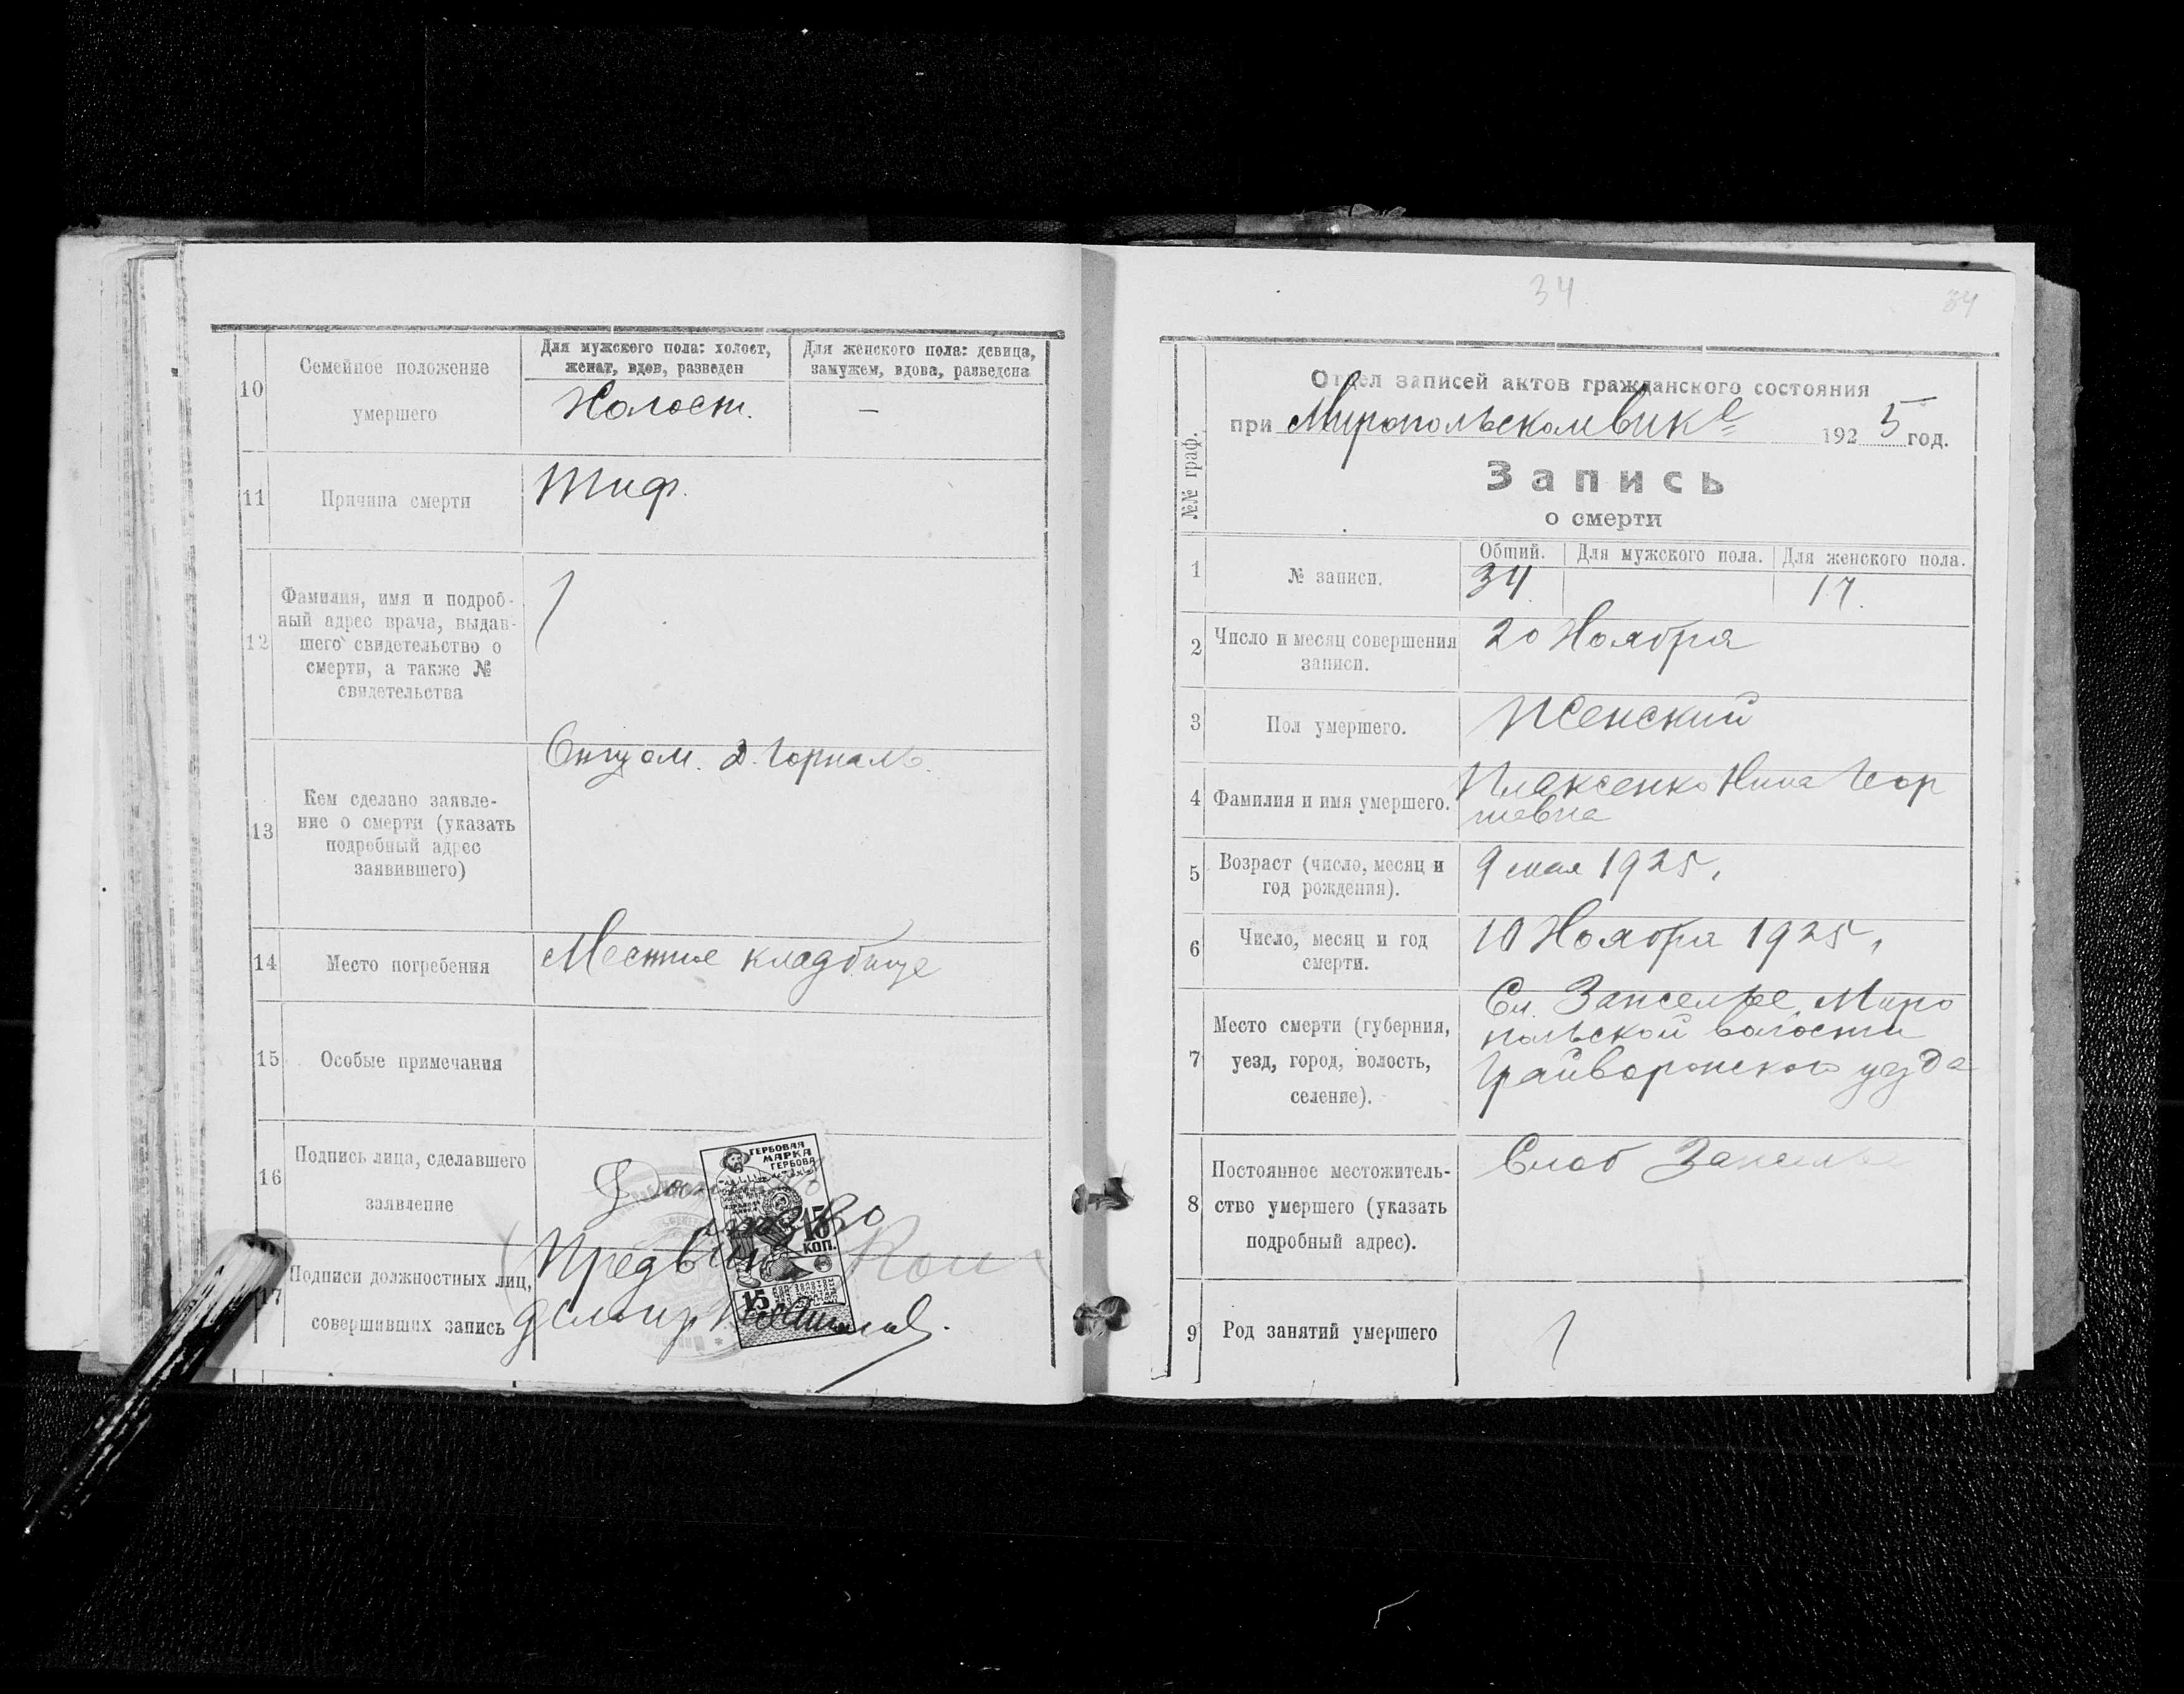 10
Семейное положение
умершего
Для мужского пола: холост,
женат, вдов, разведен
Для женского пола: девица,
замужем, вдова, разведена
Холост.
—
11
Причина смерти
Тиф.
12
Фамилия, имя и подроб-
ный адрес врача, выдав-
шего свидетельство о
смерти, а также №
свидетельства
13
Кем сделано заявле-
ние о смерти (указать
подробный адрес
заявившего)
Отцом. Д. Горналь.
14
Место погребения
Местное кладбище
15
Особые примечания
16
Подпись лица, сделавшего
заявление
17
Подписи должностных лиц,
совершивших запись
Предвик
делопр
ГЕРБОВАЯ
МАРКА
ГЕРБОВА
15
КОП.
15
34
34
№№ граф.
Отдел записей актов гражданского состояния
при Миропольском вике 1925 год.
Запись
о смерти
1
№ записи.
Общий.
Для мужского пола.
Для женского пола.
34
17.
2
Число и месяц совершения
записи.
20 Ноября
3
Пол умершего.
Женский
4
Фамилия и имя умершего.
Плаксенко Нина Геор
гиевна
5
Возраст (число, месяц и
год рождения).
9 мая 1925,
6
Число, месяц и год
смерти.
10 Ноября 1925,
7
Место смерти (губерния,
уезд, город, волость,
селение).
Сл. Запселье Миро
польской волости
Грайворонского уезда
8
Постоянное местожитель-
ство умершего (указать
подробный адрес).
Слоб Запселье
9
Род занятий умершего